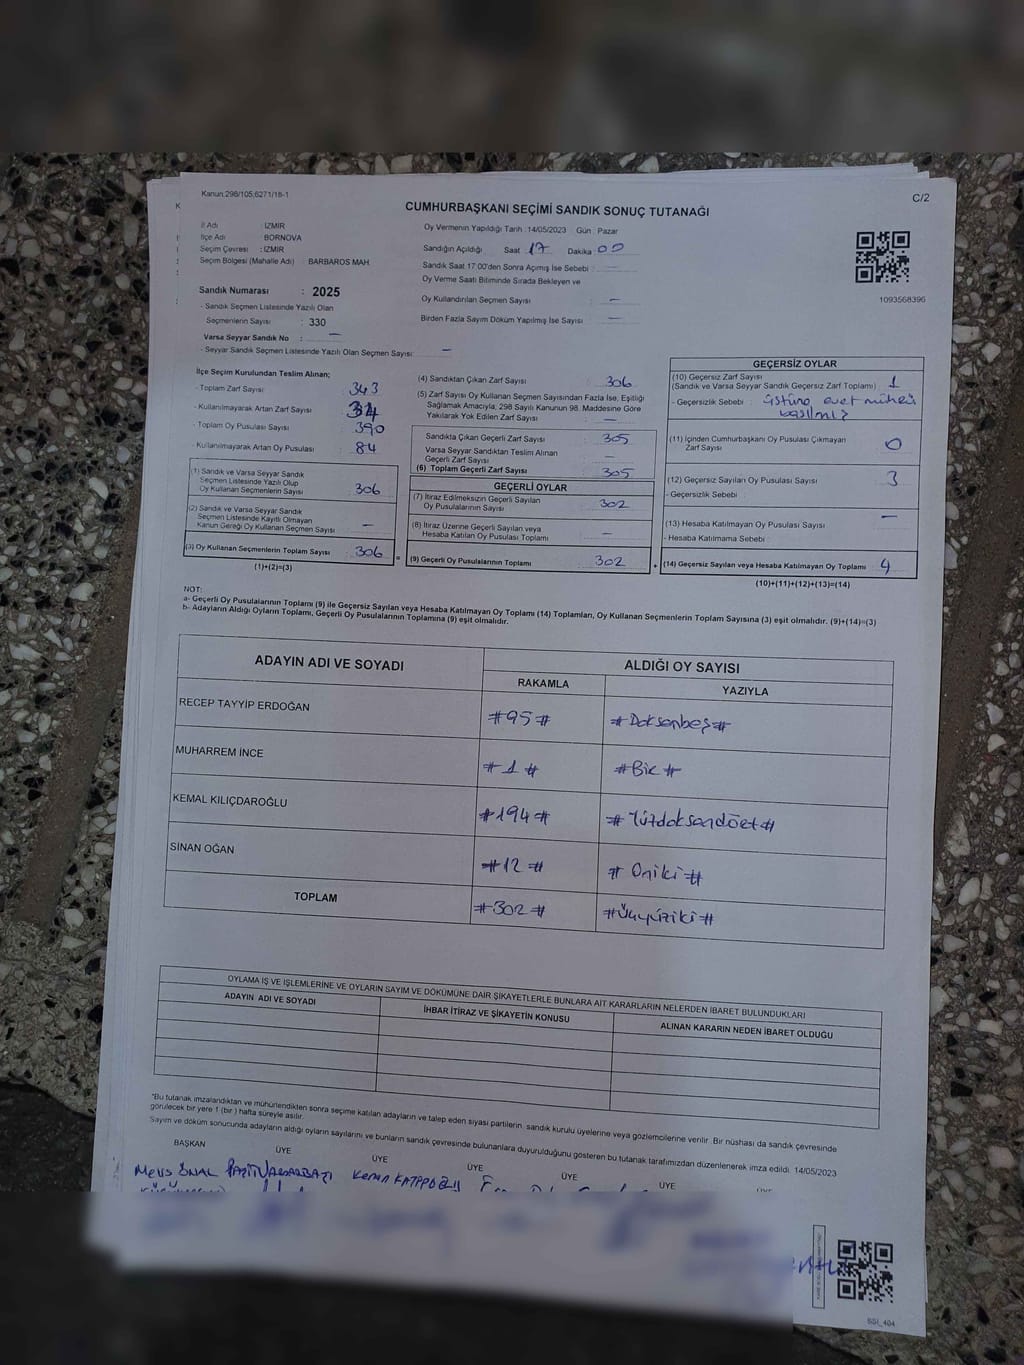 Kanun:298/105;6271/18-1
C/2
CUMHURBAŞKANI SEÇİMİ SANDIK SONUÇ TUTANAĞI
İl Adı : İZMİR
İlçe Adı : BORNOVA
Seçim Çevresi : İZMİR
Seçim Bölgesi (Mahalle Adı) : BARBAROS MAH.
Oy Vermenin Yapıldığı Tarih :14/05/2023 Gün : Pazar
Sandığın Açıldığı Saat 17 Dakika 00
Sandık Saat 17:00'den Sonra Açımış İse Sebebi : —
Oy Verme Saati Bitiminde Sırada Bekleyen ve
Oy Kullandırılan Seçmen Sayısı : —
Birden Fazla Sayım Döküm Yapılmış İse Sayısı : —
1093568396
Sandık Numarası : 2025
- Sandık Seçmen Listesinde Yazılı Olan
Seçmenlerin Sayısı : 330
Varsa Seyyar Sandık No : —
- Seyyar Sandık Seçmen Listesinde Yazılı Olan Seçmen Sayısı: —
İlçe Seçim Kurulundan Teslim Alınan;
- Toplam Zarf Sayısı 343
- Kullanılmayarak Artan Zarf Sayısı
- Toplam Oy Pusulası Sayısı 390
- Kullanılmayarak Artan Oy Pusulası : 84
(1) Sandık ve Varsa Seyyar Sandık
Seçmen Listesinde Yazılı Olup
Oy Kullanan Seçmenlerin Sayısı 306
(2) Sandık ve Varsa Seyyar Sandık
Seçmen Listesinde Kayıtlı Olmayan
Kanun Gereği Oy Kullanan Seçmen Sayısı —
(3) Oy Kullanan Seçmenlerin Toplam Sayısı 306
(1)+(2)=(3)
=
(4) Sandıktan Çıkan Zarf Sayısı : 306
(5) Zarf Sayısı Oy Kullanan Seçmen Sayısından Fazla İse, Eşitliği
Sağlamak Amacıyla; 298 Sayılı Kanunun 98. Maddesine Göre
Yakılarak Yok Edilen Zarf Sayısı : —
Sandıkta Çıkan Geçerli Zarf Sayısı : 305
Varsa Seyyar Sandıktan Teslim Alınan
Geçerli Zarf Sayısı —
(6) Toplam Geçerli Zarf Sayısı : 305
GEÇERLİ OYLAR
(7) İtiraz Edilmeksizin Geçerli Sayılan
Oy Pusulalarının Sayısı : 302
(8) İtiraz Üzerine Geçerli Sayılan veya
Hesaba Katılan Oy Pusulası Toplamı —
(9) Geçerli Oy Pusulalarının Toplamı 302
+
GEÇERSİZ OYLAR
(10) Geçersiz Zarf Sayısı
(Sandık ve Varsa Seyyar Sandık Geçersiz Zarf Toplamı) : 1
- Geçersizlik Sebebi : üstüne evet mührü
(11) İçinden Cumhurbaşkanı Oy Pusulası Çıkmayan
Zarf Sayısı 0
(12) Geçersiz Sayılan Oy Pusulası Sayısı 3
- Geçersizlik Sebebi :
(13) Hesaba Katılmayan Oy Pusulası Sayısı —
- Hesaba Katılmama Sebebi :
(14) Geçersiz Sayılan veya Hesaba Katılmayan Oy Toplamı 4
(10)+(11)+(12)+(13)=(14)
NOT:
a- Geçerli Oy Pusulalarının Toplamı (9) ile Geçersiz Sayılan veya Hesaba Katılmayan Oy Toplamı (14) Toplamları, Oy Kullanan Seçmenlerin Toplam Sayısına (3) eşit olmalıdır. (9)+(14)=(3)
b- Adayların Aldığı Oyların Toplamı, Geçerli Oy Pusulalarının Toplamına (9) eşit olmalıdır.
ADAYIN ADI VE SOYADI
ALDIĞI OY SAYISI
RAKAMLA YAZIYLA
RECEP TAYYİP ERDOĞAN #95# #Doksanbeş#
MUHARREM İNCE #1# #Bir#
KEMAL KILIÇDAROĞLU #194# #Yüzdoksandört#
SİNAN OĞAN #12# #Oniki#
TOPLAM #302# #Üçyüziki#
OYLAMA İŞ VE İŞLEMLERİNE VE OYLARIN SAYIM VE DÖKÜMÜNE DAİR ŞİKAYETLERLE BUNLARA AİT KARARLARIN NELERDEN İBARET BULUNDUKLARI
ADAYIN ADI VE SOYADI İHBAR İTİRAZ VE ŞİKAYETİN KONUSU ALINAN KARARIN NEDEN İBARET OLDUĞU
*Bu tutanak imzalandıktan ve mühürlendikten sonra seçime katılan adayların ve talep eden siyasi partilerin, sandık kurulu üyelerine veya gözlemcilerine verilir. Bir nüshası da sandık çevresinde
görülecek bir yere 1 (bir) hafta süreyle asılır.
Sayım ve döküm sonucunda adayların aldığı oyların sayılarını ve bunların sandık çevresinde bulunanlara duyurulduğunu gösteren bu tutanak tarafımızdan düzenlenerek imza edildi. 14/05/2023
BAŞKAN ÜYE ÜYE ÜYE ÜYE ÜYE ÜYE
SSI_404